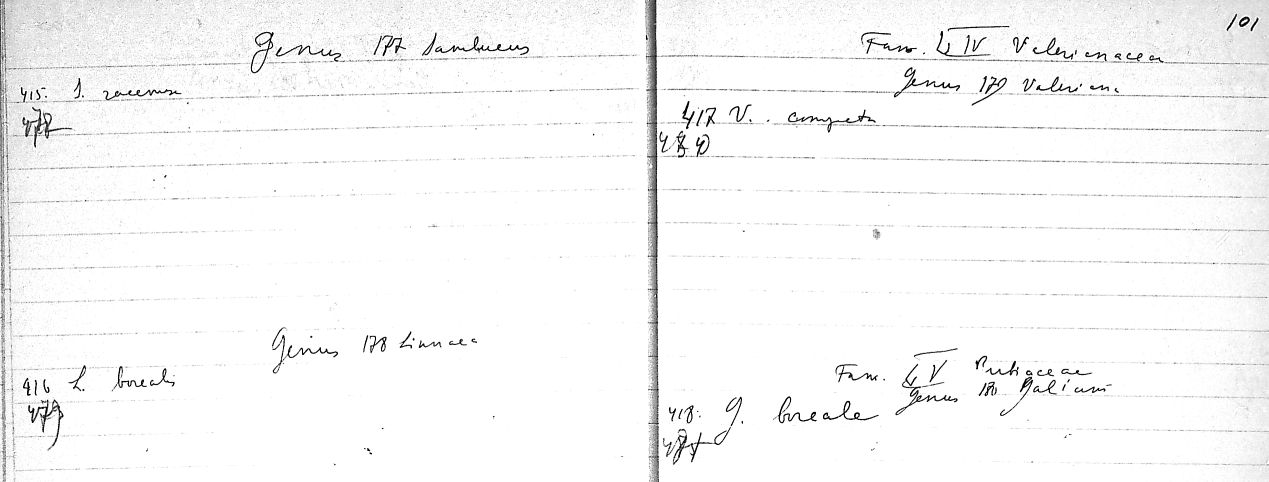 Genus 177 Sambucus
415. S. racemosa
478
Genus 178 Linnaea
416 L. borealis
479
101
Fam. LIV Valerianaceae
Genus 179 Valeriana
417 V.
480
Fam. LV Rubiaceae
Genus 180 Galium
418. G. boreale